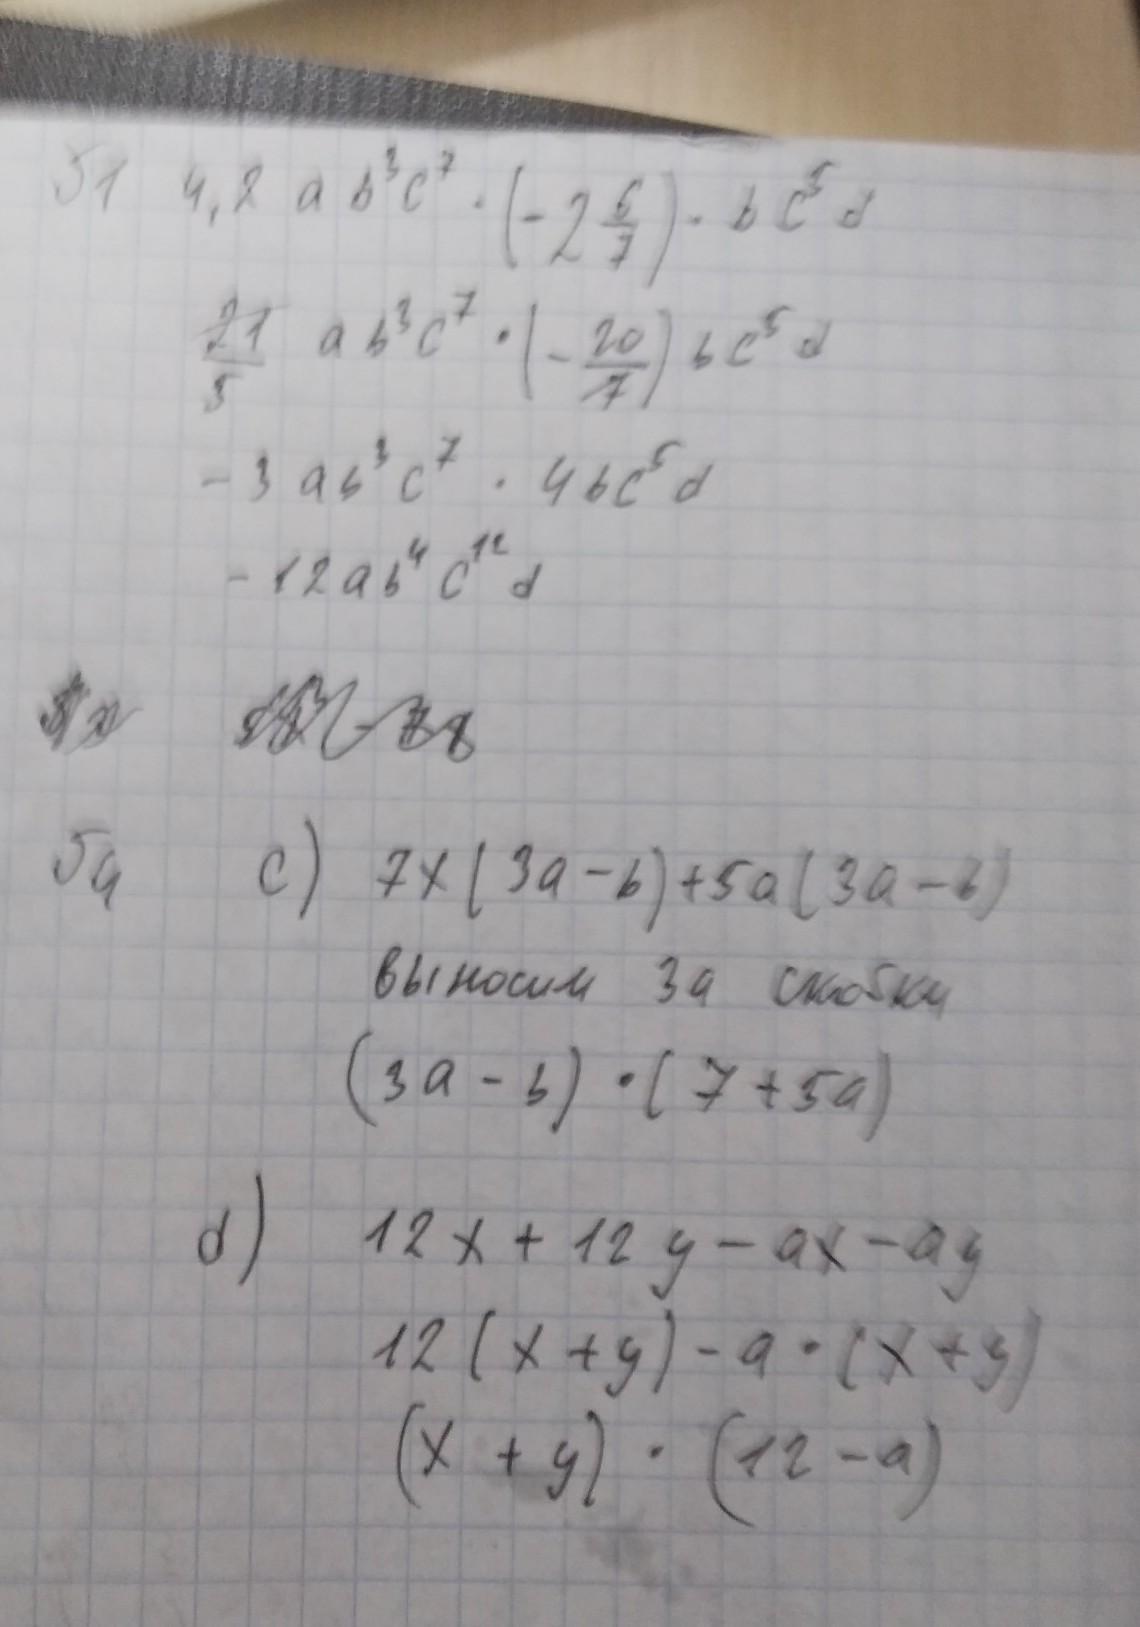 51 4,2 ab³c⁷ · (-2 6/7) · bc⁵d
21/5 ab³c⁷ · (-20/7) bc⁵d
-3ab³c⁷ · 4bc⁵d
-12ab⁴c¹²d
54 c) 7x(3a-b)+5a(3a-b)
выносим за скобки
(3a-b) · (7+5a)
d) 12x+12y-ax-ay
12(x+y)-a·(x+y)
(x+y) · (12-a)